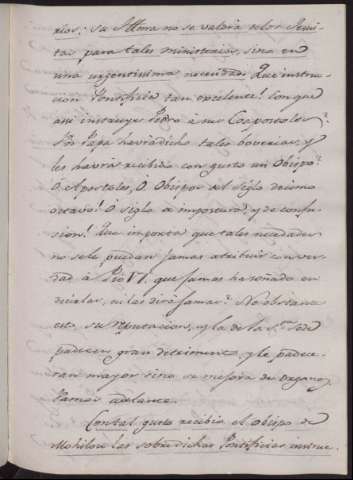 rios: su Illma no se valdria de los Jesui-
tas para tales ministerios, sino en
una urgentisima necesidad. Que instruc-
cion Pontificia tan excelente! Con que
asi instruye Pedro à sus Coapostoles?
Un Papa havrà dicho tales boverias, y
les havrà recibido con gusto un Obispo?
O Apostoles, O Obispos del Siglo decimo
octavo! O siglo de impostura, y de confu-
sion! Que importa que tales necedades
no se le puedan jamas atribuir con ver-
dad à Pio VI, que jamas ha soñado en
decirlas, ni las dirà jamas? No obstante
esto, su reputacion, y la de la S.ta Sede
padecen gran detrimento, y le padece-
ran mayor sino se mejora de Organo.
Vamos adelante.
Con tal gusto recibio el Obispo de
Mohilow las sobredichas Pontificias instruc-